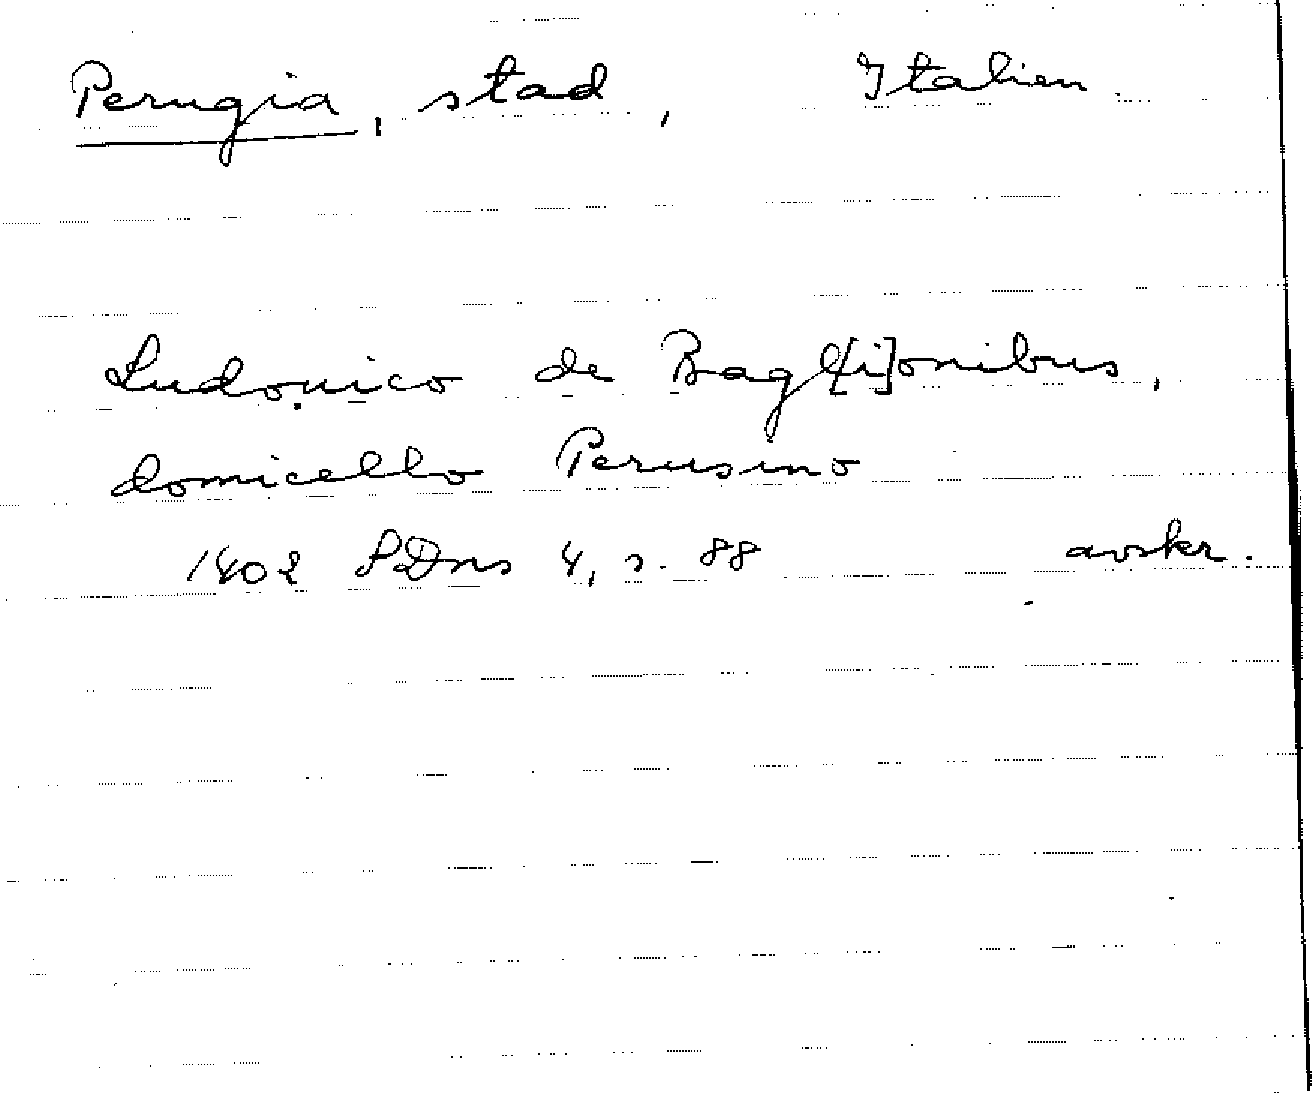 Perugia, stad, Italien
Ludouico de Bagl[i]onibus,
domicello Perusino
1402 SDns 4, s. 88 avskr.